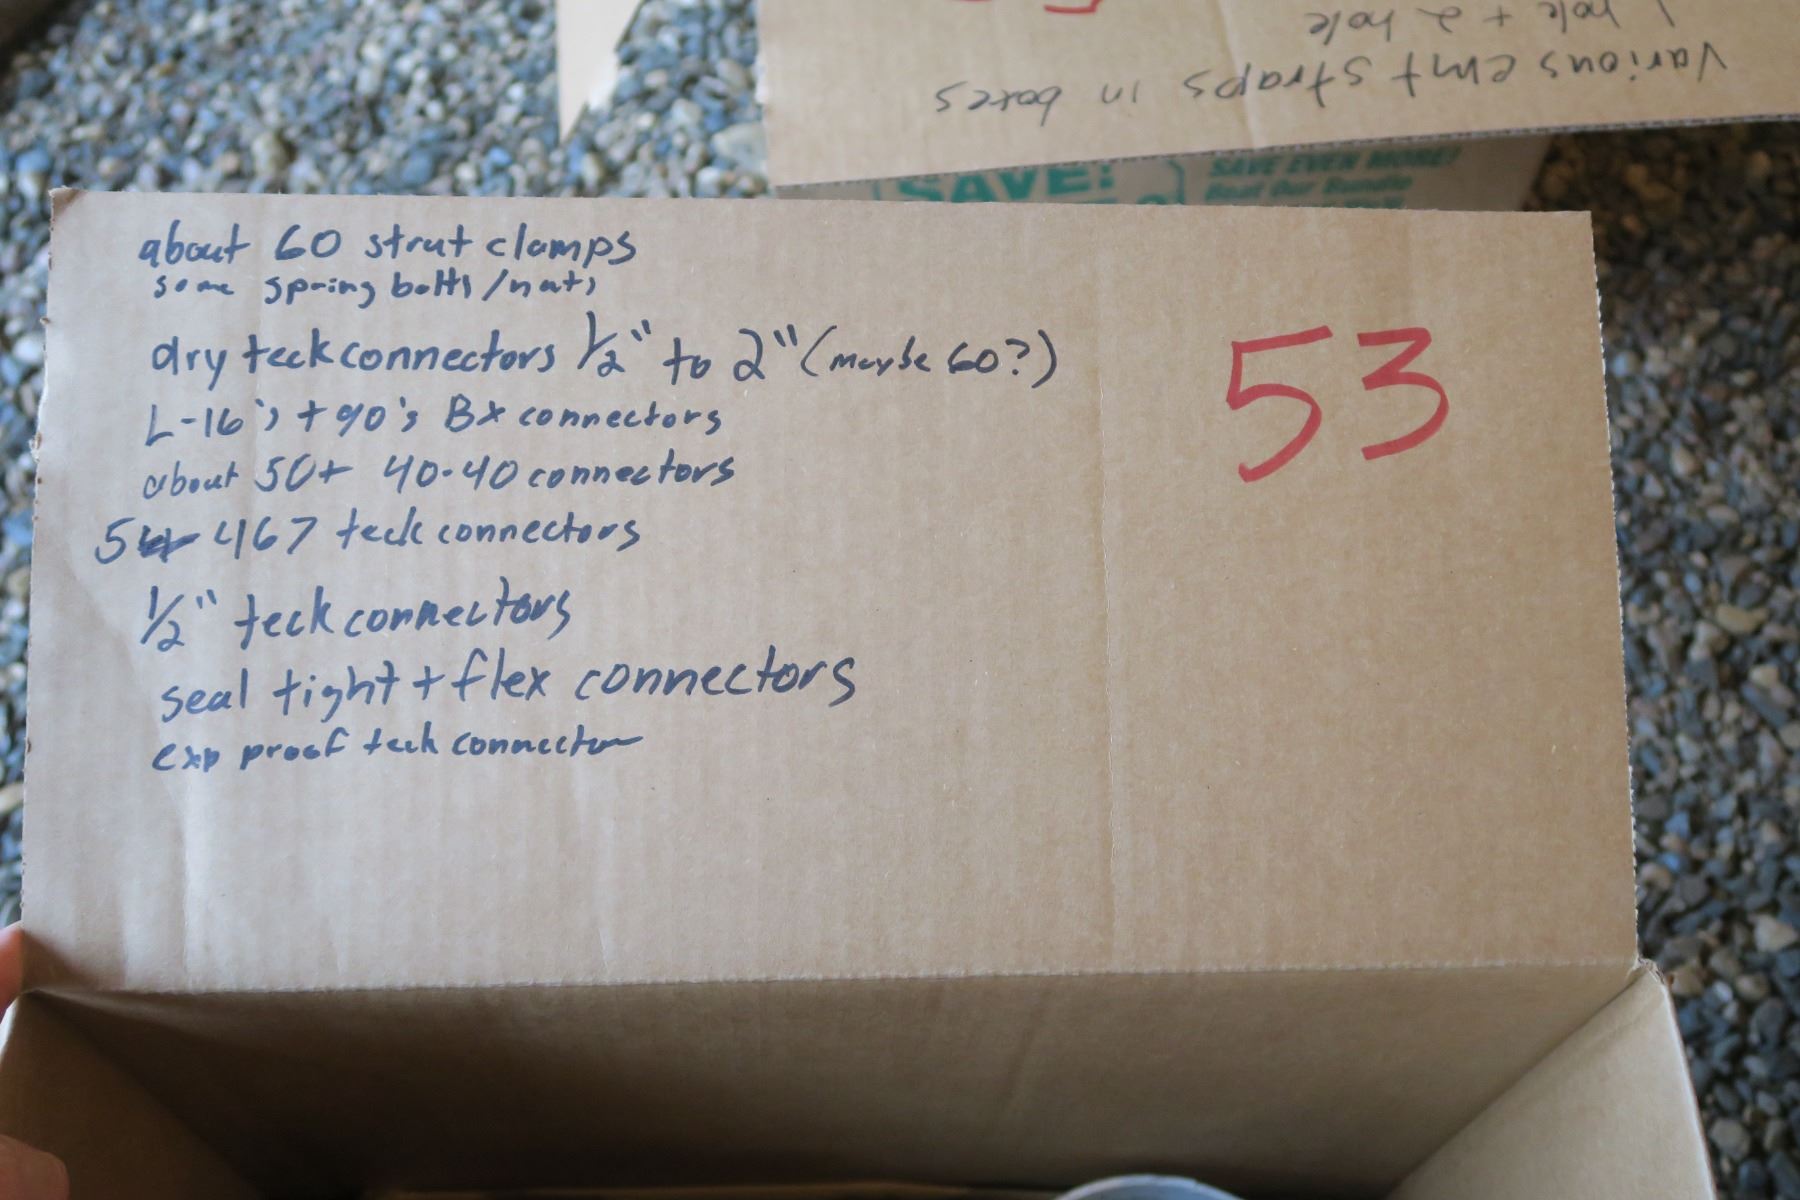 1 hole + 2 hole
Various emt straps in boxes
SAVE!
SAVE EVEN MORE!
Beat Our Bundle
about 60 strut clamps
some spring bolts/nuts
dry teck connectors 1/2" to 2" (maybe 60?)
L-16's + 90's Bx connectors
about 50+ 40-40 connectors
5 467 teck connectors
1/2" teck connectors
seal tight + flex connectors
exp proof teck connector
53